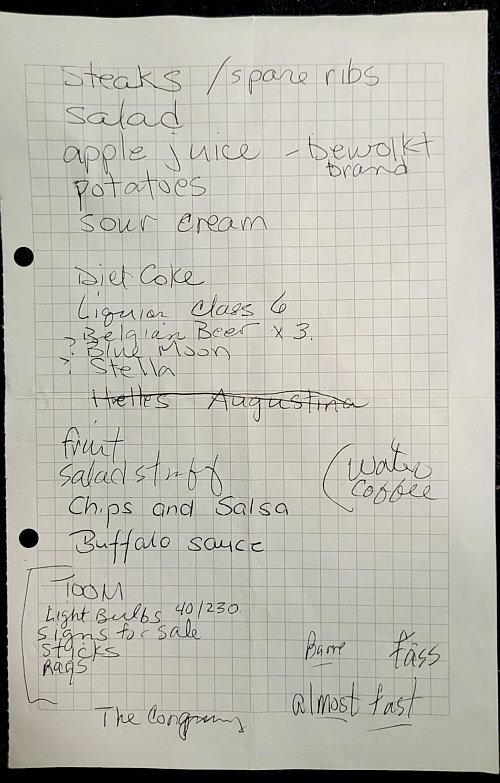 steaks / spare ribs
salad
apple juice - bewolkt
brand
potatoes
sour cream
Diet Coke
Liquior Class 6
Belgian Beer x 3.
? Blue Moon
? Stella
Helles Augustina
fruit
salad stuff
Chips and Salsa
Buffalo sauce
(water
coffee
TOOM
Light Bulbs 40/230
Signs for sale
Sticks
Rags
Barre
fass
almost fast
The